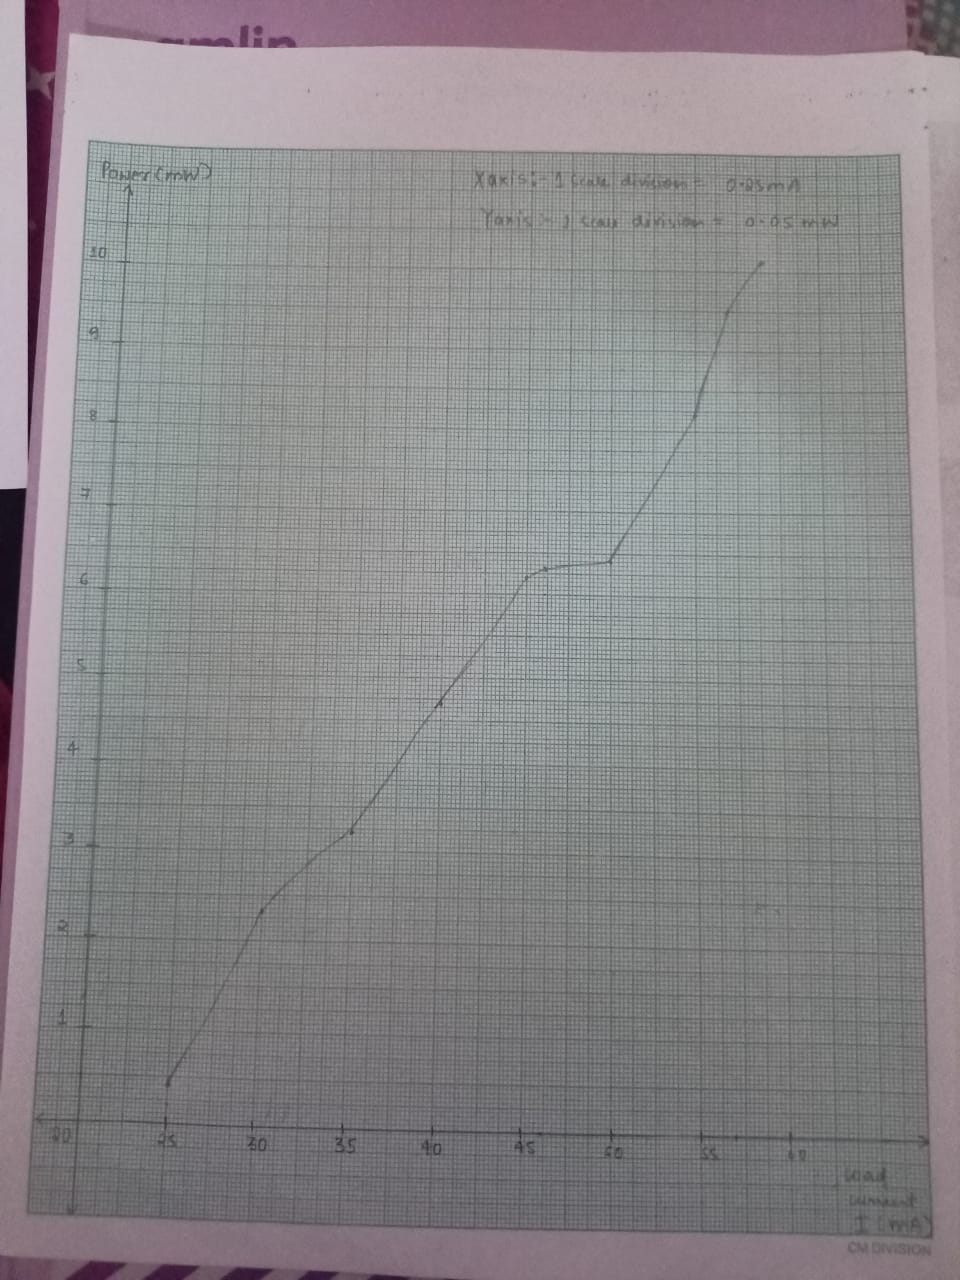 amlin
Power (mW)
X axis:- 1 Scale division = 0.25mA
Y axis - 1 Scale division = 0.05 mW
10
9
8
7
6
5
4
3
2
1
20 25 30 35 40 45 50 55 60
load
current
I (mA)
CM DIVISION